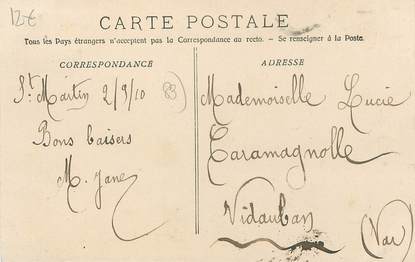 12€
CARTE POSTALE
Tous les Pays étrangers n'acceptent pas la Correspondance au recto. – Se renseigner à la Poste.
CORRESPONDANCE
ADRESSE
St. Martin 2/9/10
83
Bons baisers
M. Jane
Mademoiselle Lucie
Caramagnolle
Vidauban
(Var)